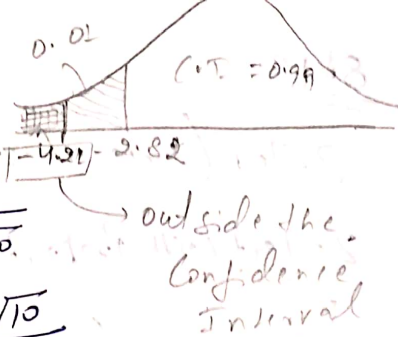 0.01
C.I. = 0.99
-4.21 - 2.82
outside the
Confidence
Interval
√10